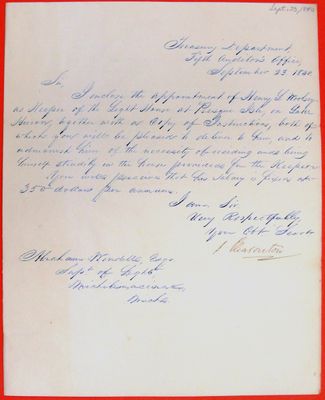 Sept. 23/1840
Treasury Department,
Fifth Auditor's Office,
September 23. 1840.
Sir,
I enclose the appointment of Henry L. Woolsey
as Keeper of the Light House at Presque Isle, on Lake
Huron, together with a Copy of Instructions, both of
which you will be pleased to deliver to him, and to
admonish him of the necessity of residing and being
himself steadily in the house provided for the Keeper.
You will perceive that his Salary is fixed at
350 dollars per annum.
I am Sir
Very Respectfully,
Your Obt Servt
S. Pleasonton
Abraham Wendell, Esqr.
Supt. of Lights
Michilimackinac,
Micha.